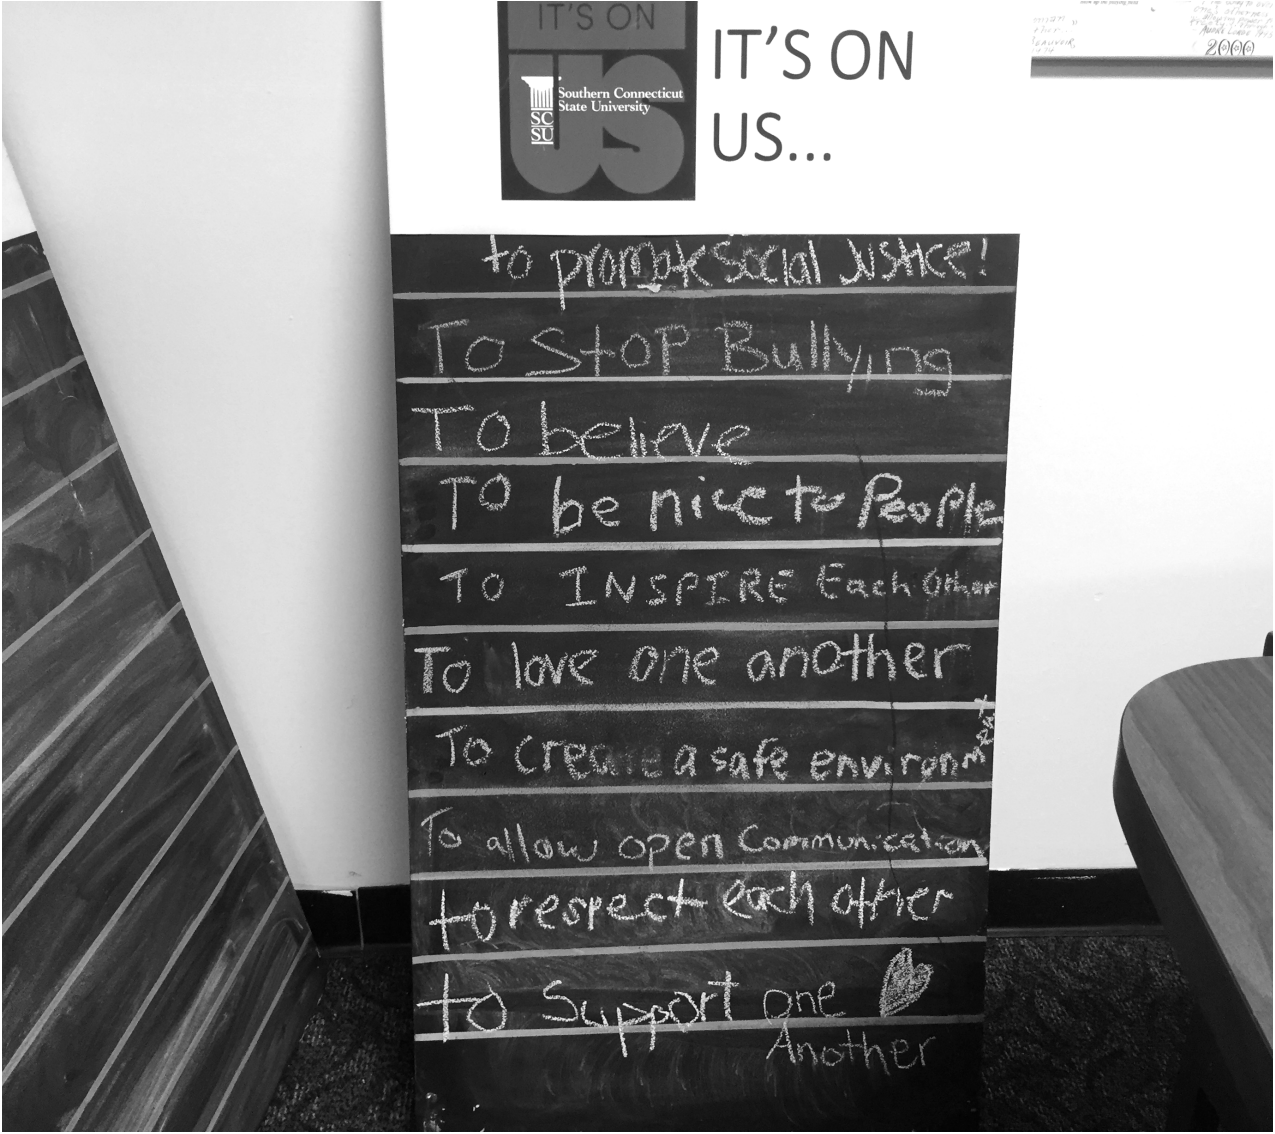 IT'S ON
US
Southern Connecticut
State University
SC
SU
IT'S ON
US...
2000
to promote social Justice!
To StoP Bullying
To believe
To be nice to People
To INSPIRE Each Other
To love one another
To create a safe environment
To allow open Communication
to respect each other
to Support one
Another